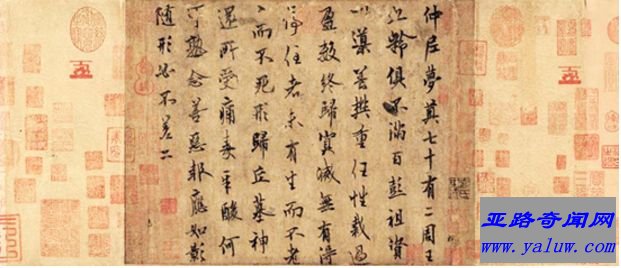 仲尼夢奠七十有二周王
九齡俱不滿百彭祖資
以導養樊重任性裁過
盈數終歸冥滅無有得
停住者未有生而不老
老而不死形歸丘墓神
還所受痛毒辛酸何
可熟念善惡報應如影
隨形必不差二
亚路奇闻网
www.yaluw.com